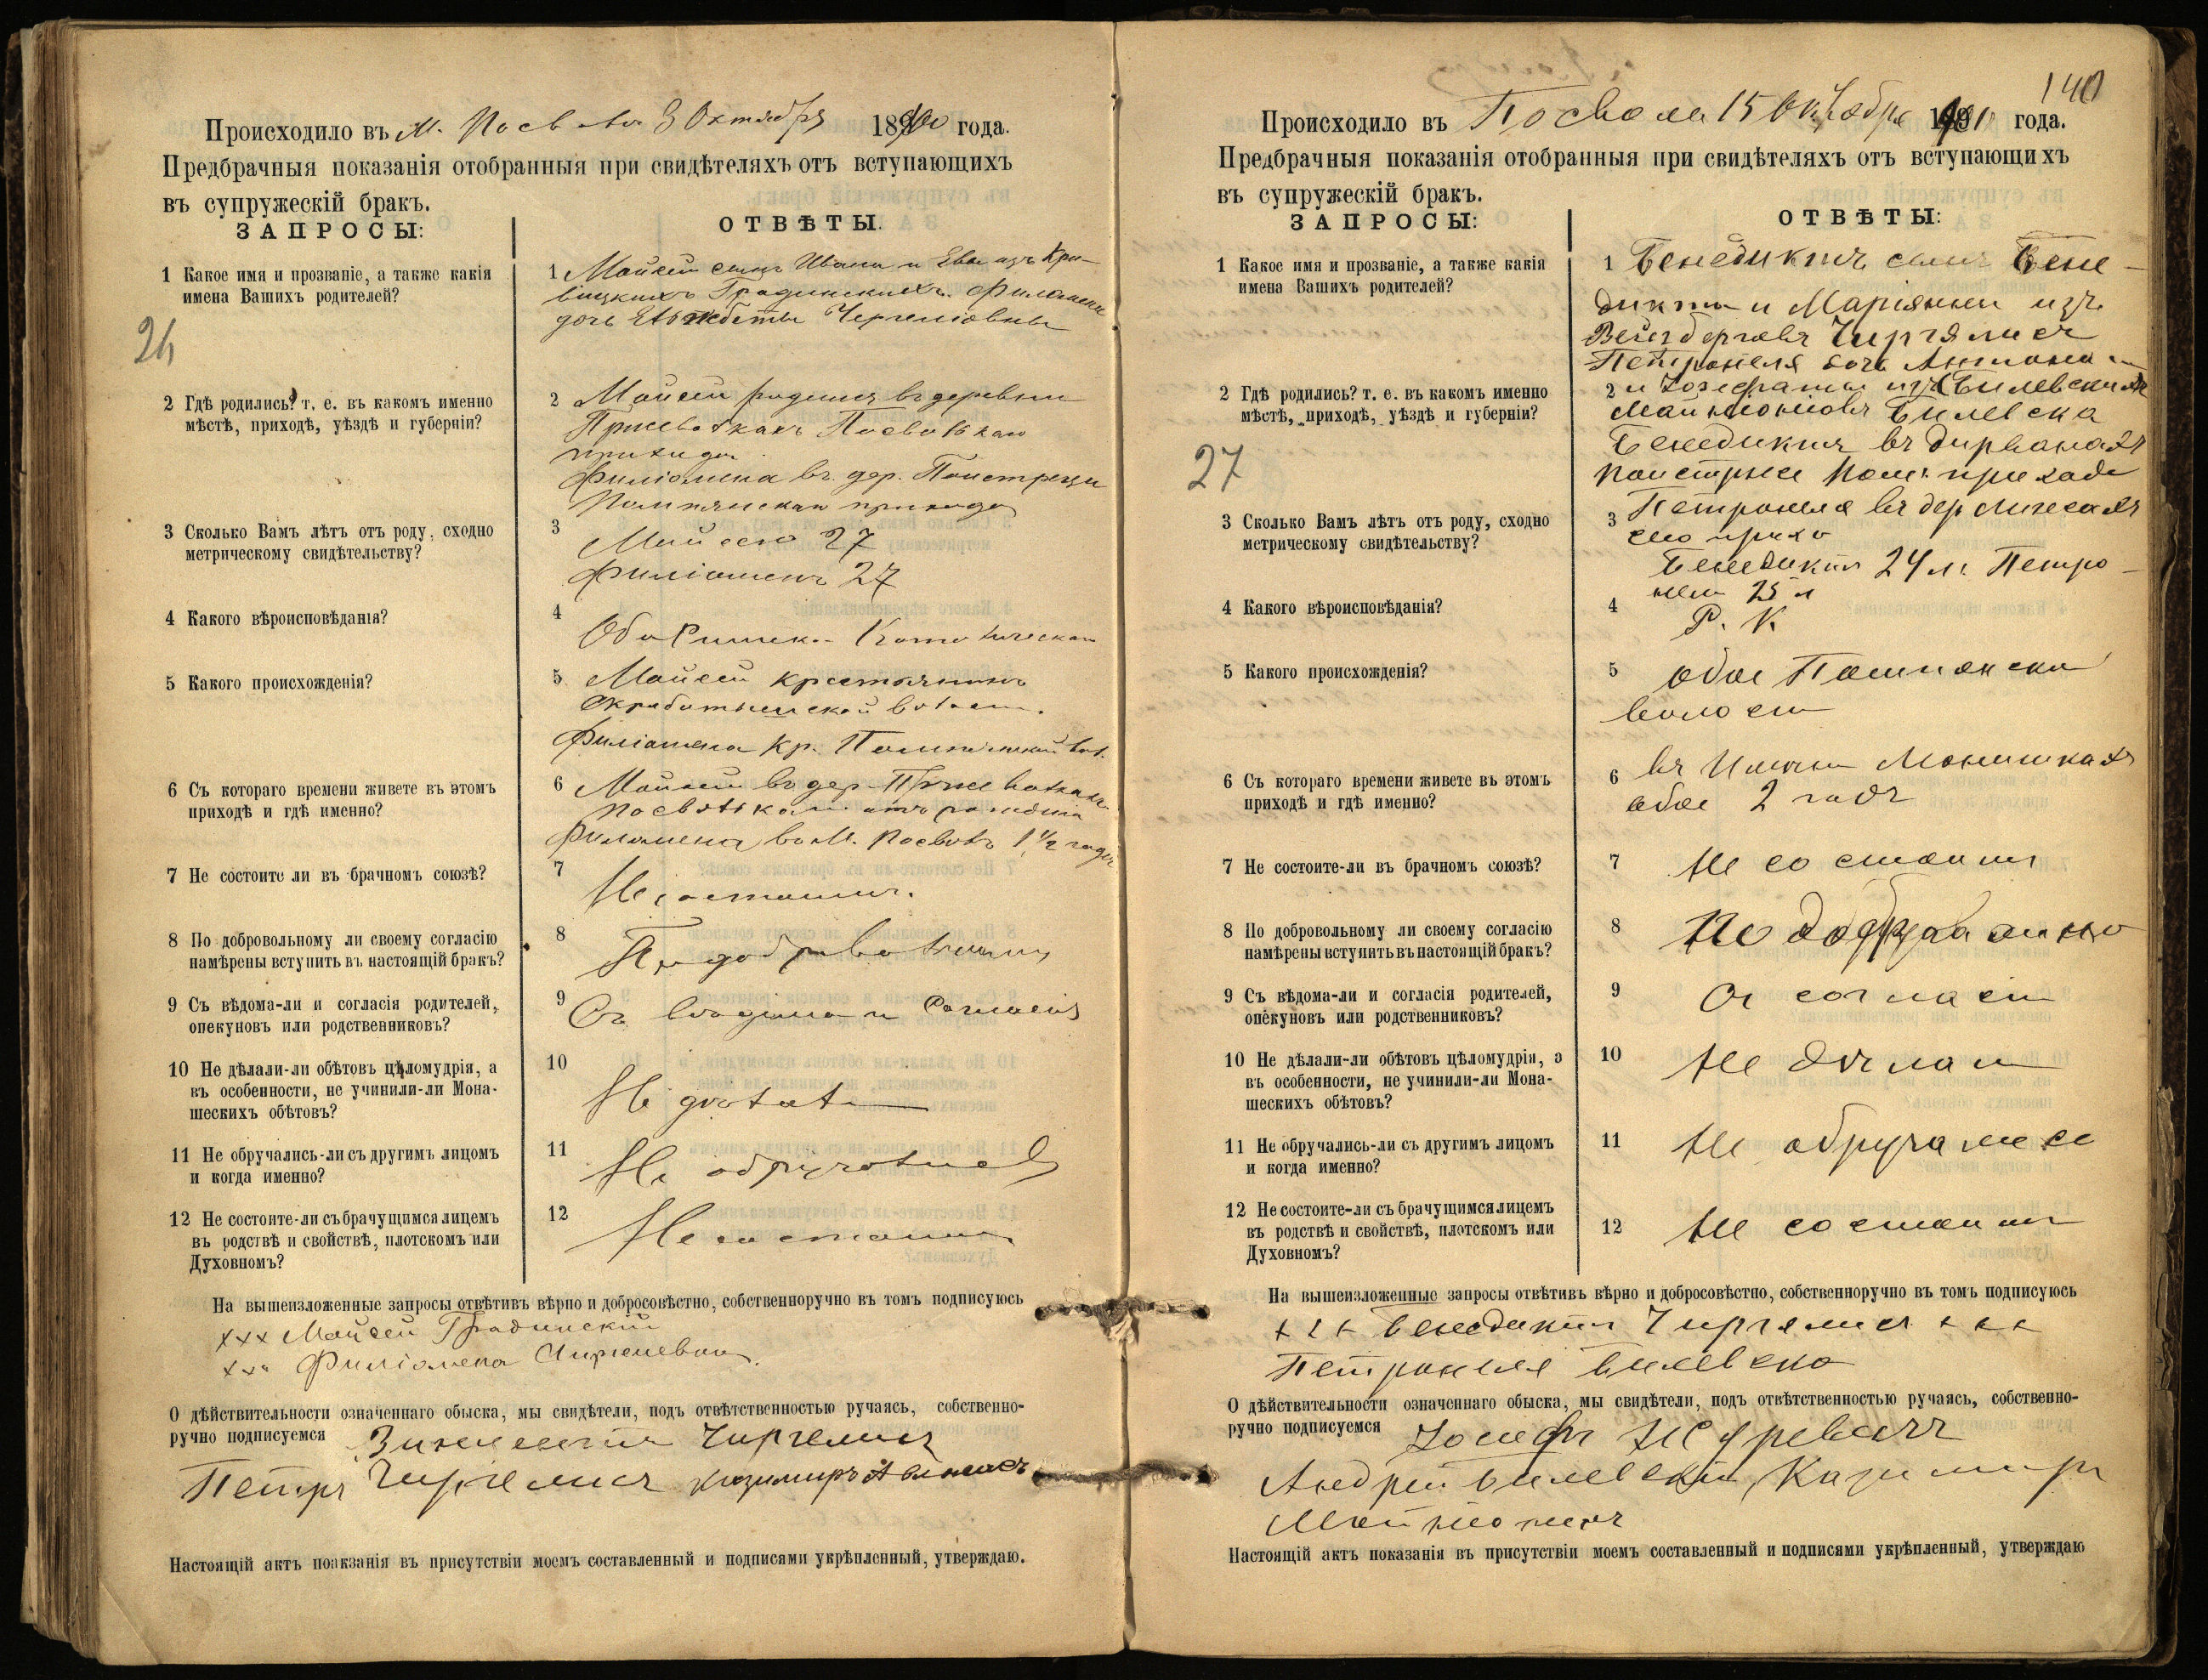 Происходило въ м. Посволъ 8 Октября 1890 года.
Предбрачныя показанія отобранныя при свидѣтеляхъ отъ вступающихъ
въ супружескій бракъ.
ЗАПРОСЫ:
ОТВѢТЫ.
1 Какое имя и прозваніе, а также какія
имена Вашихъ родителей?
26
1 Мойсей сынъ Ивана и Евы изъ Кри-
Градинскихъ. Филомена
дочь Чергеліовны
2 Гдѣ родились? т. е. въ какомъ именно
мѣстѣ, приходѣ, уѣздѣ и губерніи?
2 Мойсей родился въ деревни
прихода
Филіомена въ дер.
прихода
3 Сколько Вамъ лѣтъ отъ роду, сходно
метрическому свидѣтельству?
3
Мойсею 27
Филіомень 27
4 Какого вѣроисповѣданія?
4
Оба Римско Католическаго
5 Какого происхожденія?
5 Мойсей крестьянинъ
волости.
Филіомена кр.
6 Съ котораго времени живете въ этомъ
приходѣ и гдѣ именно?
6 Мойсей въ дер.
Филомена въ м. Посволъ 1 1/2 года
7 Не состоите ли въ брачномъ союзѣ?
7
Не состоимъ.
8 По добровольному ли своему согласію
намѣрены вступить въ настоящій бракъ?
8
По добровольному
9 Съ вѣдома-ли и согласія родителей,
опекуновъ или родственниковъ?
9
Съ вѣдома и согласія
10 Не дѣлали-ли обѣтовъ цѣломудрія, а
въ особенности, не учинили-ли Мона-
шескихъ обѣтовъ?
10
Не дѣлали
11 Не обручались-ли съ другимъ лицомъ
и когда именно?
11
Не обручались
12 Не состоите-ли съ брачущимся лицемъ
въ родствѣ и свойствѣ, плотскомъ или
Духовномъ?
12
Не состоимъ
На вышеизложенные запросы отвѣтивъ вѣрно и добросовѣстно, собственноручно въ томъ подписуюсь
xxx Мойсей Градинскій
xxx Филіомена
О дѣйствительности означеннаго обыска, мы свидѣтели, подъ отвѣтственностью ручаясь, собственно-
ручно подписуемся Чиргелисъ
Петръ Чиргелисъ Казимиръ
Настоящій актъ поаказанія въ присутствіи моемъ составленный и подписями укрѣпленный, утверждаю.
140
Происходило въ Посволе 15 Октября года.
Предбрачныя показанія отобранныя при свидѣтеляхъ отъ вступающихъ
въ супружескій бракъ.
ЗАПРОСЫ:
ОТВѢТЫ:
1 Какое имя и прозваніе, а также какія
имена Вашихъ родителей?
1 Бенедиктъ сынъ Бене-
дикта и Маріянны изъ
Вейгберговъ Чиргялисъ
Петронеля дочь Антона
2 Гдѣ родились? т. е. въ какомъ именно
мѣстѣ, приходѣ, уѣздѣ и губерніи?
27
2 и Іозефаты изъ
Билевска
Бенедиктъ въ Дирванахъ
приходе
3 Сколько Вамъ лѣтъ отъ роду, сходно
метрическому свидѣтельству?
3 Петронеля въ дер
прихо
Бенедикт 24 л. Петро-
нели 25 л
4 Какого вѣроисповѣданія?
4
Р. К.
5 Какого происхожденія?
5 обое
волости
6 Съ котораго времени живете въ этомъ
приходѣ и гдѣ именно?
6 въ Монишкахъ
обое 2 года
7 Не состоите-ли въ брачномъ союзѣ?
7 Не состоимъ
8 По добровольному ли своему согласію
намѣрены вступить въ настоящій бракъ?
8 По добровольно
9 Съ вѣдома-ли и согласія родителей,
опекуновъ или родственниковъ?
9 Съ согласія
10 Не дѣлали-ли обѣтовъ цѣломудрія, а
въ особенности, не учинили-ли Мона-
шескихъ обѣтовъ?
10 Не дѣлали
11 Не обручались-ли съ другимъ лицомъ
и когда именно?
11 Не обручалисе
12 Не состоите-ли съ брачущимся лицемъ
въ родствѣ и свойствѣ, плотскомъ или
Духовномъ?
12 Не состоимъ
На вышеизложенные запросы отвѣтивъ вѣрно и добросовѣстно, собственноручно въ томъ подписуюсь
xxx Бенедиктъ Чиргялисъ xxx
Петронеля Билевска
О дѣйствительности означеннаго обыска, мы свидѣтели, подъ отвѣтственностью ручаясь, собственно-
ручно подписуемся
Андрей Билевскій, Казимиръ
Настоящій актъ показанія въ присутствіи моемъ составленный и подписями укрѣпленный, утверждаю